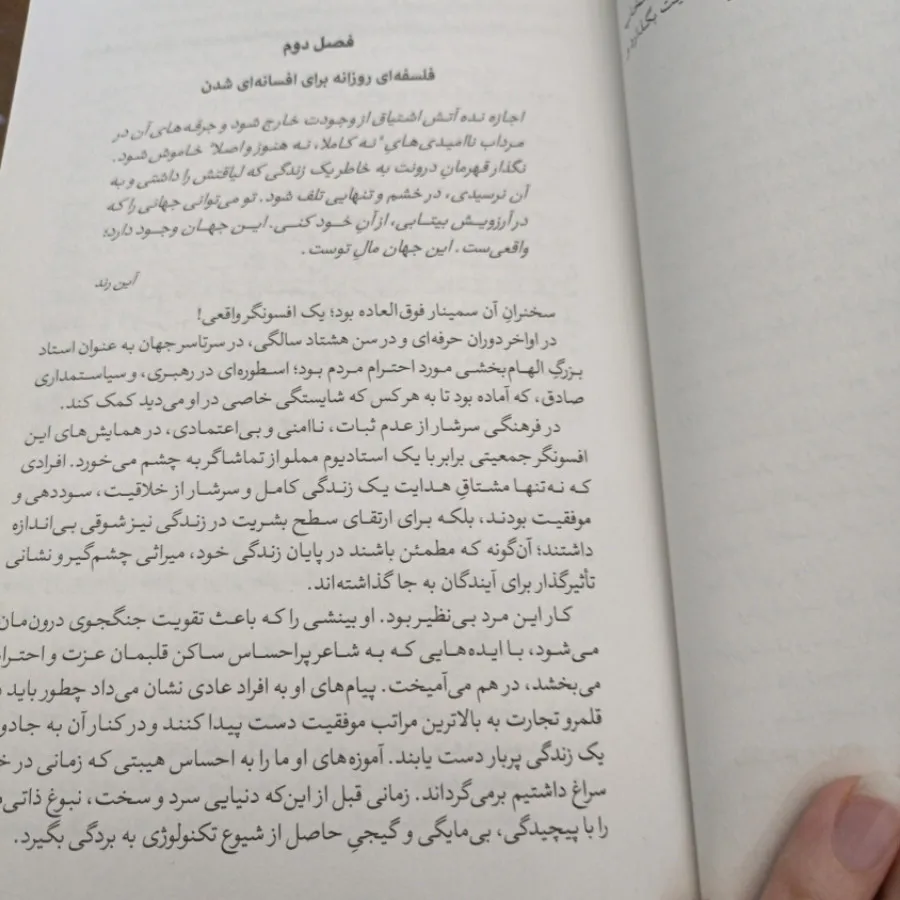 فصل دوم
فلسفه‌ای روزانه برای افسانه‌ای شدن
اجازه نده آتش اشتیاق از وجودت خارج شود و جرقه‌های آن در
مرداب ناامیدی‌هایِ "نه کاملا، نه هنوز و اصلا" خاموش شود.
نگذار قهرمانِ درونت به خاطر یک زندگی که لیاقتش را داشتی و به
آن نرسیدی، در خشم و تنهایی تلف شود. تو می‌توانی جهانی را که
در آرزویش بیتابی، از آنِ خود کنی. این جهان وجود دارد؛
واقعی‌ست. این جهان مالِ توست.
آین رند
سخنرانِ آن سمینار فوق‌العاده بود؛ یک افسونگر واقعی!
در اواخر دوران حرفه‌ای و در سن هشتاد سالگی، در سرتاسر جهان به عنوان استاد
بزرگِ الهام‌بخشی مورد احترام مردم بود؛ اسطوره‌ای در رهبری، و سیاستمداری
صادق، که آماده بود تا به هر کس که شایستگی خاصی در او می‌دید کمک کند.
در فرهنگی سرشار از عدم ثبات، ناامنی و بی‌اعتمادی، در همایش‌های این
افسونگر جمعیتی برابر با یک استادیوم مملو از تماشاگر به چشم می‌خورد. افرادی
که نه‌تنها مشتاقِ هدایت یک زندگی کامل و سرشار از خلاقیت، سوددهی و
موفقیت بودند، بلکه برای ارتقای سطح بشریت در زندگی نیز شوقی بی‌اندازه
داشتند؛ آن‌گونه که مطمئن باشند در پایان زندگی خود، میراثی چشم‌گیر و نشانی
تأثیرگذار برای آیندگان به جا گذاشته‌اند.
کار این مرد بی‌نظیر بود. او بینشی را که باعث تقویت جنگجوی درون‌مان
می‌شود، با ایده‌هایی که به شاعر پراحساس ساکن قلبمان عزت و احترا
می‌بخشد، در هم می‌آمیخت. پیام‌های او به افراد عادی نشان می‌داد چطور باید
قلمرو تجارت به بالاترین مراتب موفقیت دست پیدا کنند و در کنار آن به جادو
یک زندگی پربار دست یابند. آموزه‌های او ما را به احساس هیبتی که زمانی در
سراغ داشتیم برمی‌گرداند. زمانی قبل از این‌که دنیایی سرد و سخت، نبوغ ذاتی
را با پیچیدگی، بی‌مایگی و گیجیِ حاصل از شیوع تکنولوژی به بردگی بگیرد.